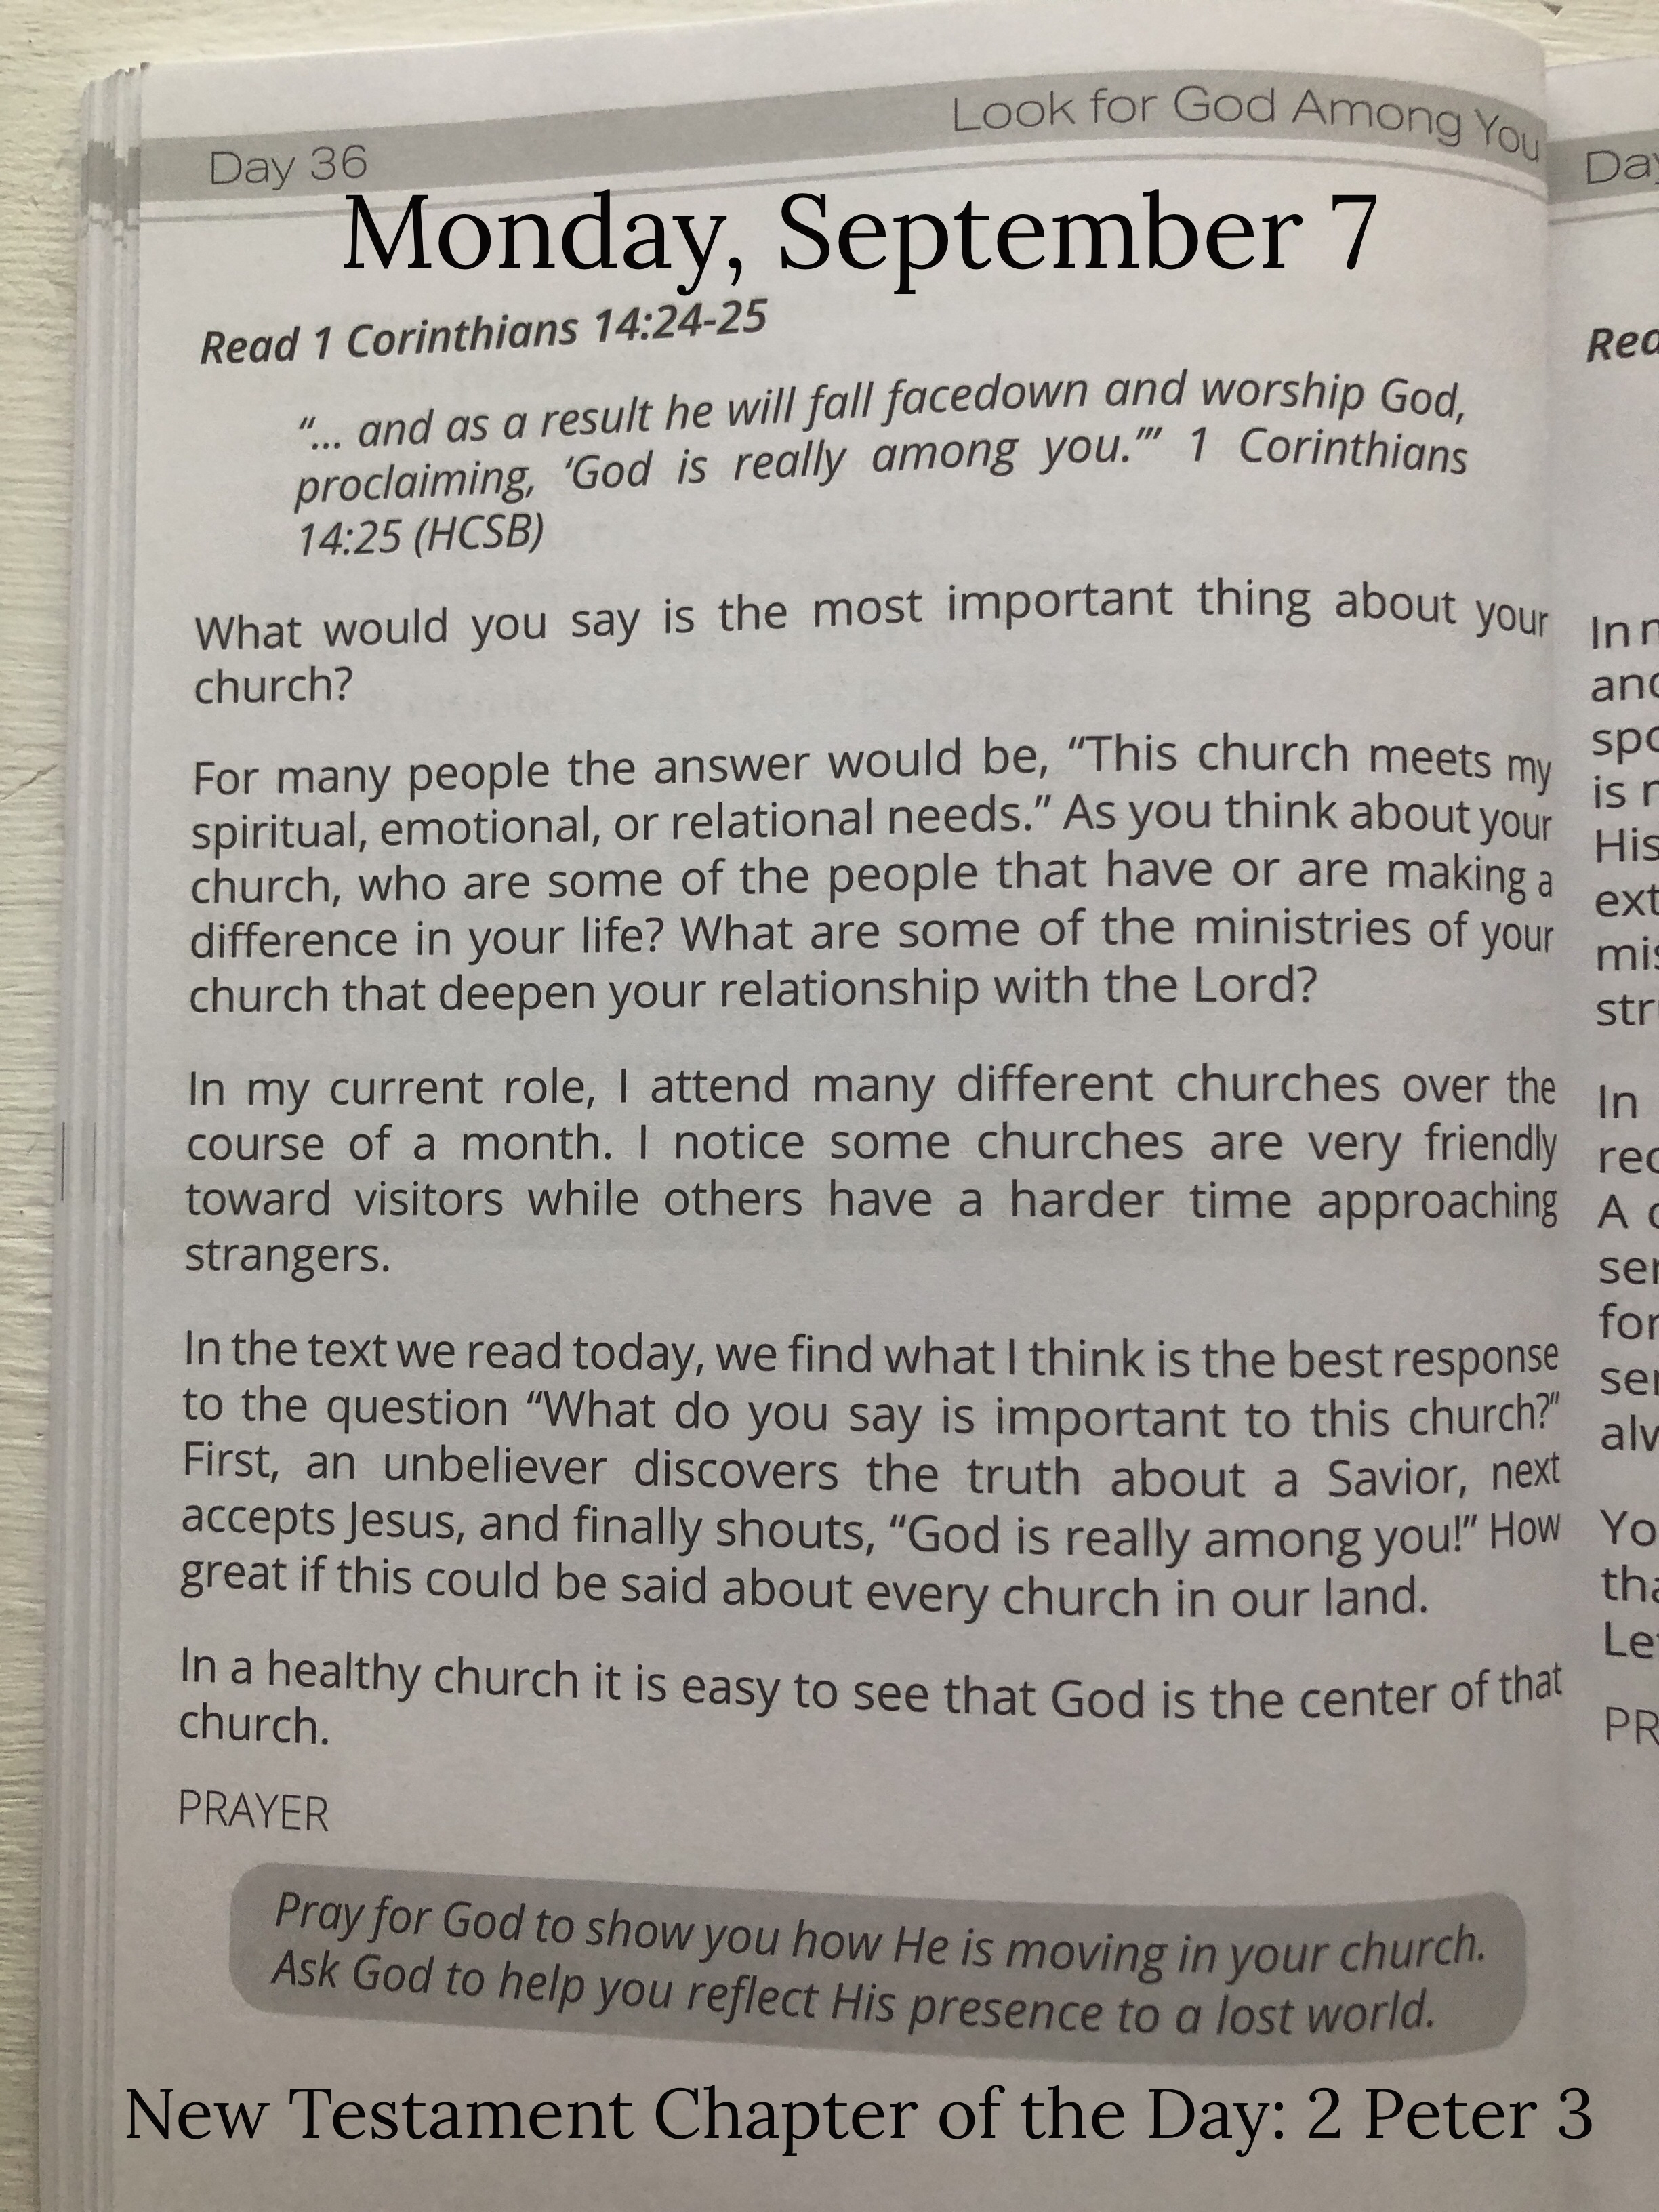 Day 36
Look for God Among You
Monday, September 7
Read 1 Corinthians 14:24-25
“... and as a result he will fall facedown and worship God,
proclaiming, ‘God is really among you.’” 1 Corinthians
14:25 (HCSB)
What would you say is the most important thing about your
church?
For many people the answer would be, “This church meets my
spiritual, emotional, or relational needs.” As you think about your
church, who are some of the people that have or are making a
difference in your life? What are some of the ministries of your
church that deepen your relationship with the Lord?
In my current role, I attend many different churches over the
course of a month. I notice some churches are very friendly
toward visitors while others have a harder time approaching
strangers.
In the text we read today, we find what I think is the best response
to the question “What do you say is important to this church?”
First, an unbeliever discovers the truth about a Savior, next
accepts Jesus, and finally shouts, “God is really among you!” How
great if this could be said about every church in our land.
In a healthy church it is easy to see that God is the center of that
church.
PRAYER
Pray for God to show you how He is moving in your church.
Ask God to help you reflect His presence to a lost world.
New Testament Chapter of the Day: 2 Peter 3
In
is
His
In
A